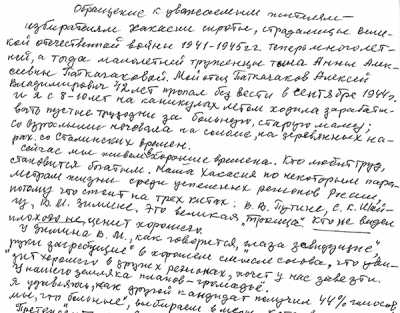 Обращение к уважаемым жителям –
избирателям Хакасии сироты, страдалицы вели-
кой отечественной войны 1941-1945гг теперь многолет-
ней, а тогда малолетней труженицы тыла Анны Алек-
сеевны Паткачаковой. Мой отец Паткачаков Алексей
Владимирович 42 лет пропал без вести в сентябре 1944г.
и я с 8-10 лет на каникулах летом ходила зарабаты-
вать пустые трудодни за больную, старую маму;
со взрослыми ночевала на соломе, на деревянных на-
рах со Сталинских времён.
Сейчас мы живём хорошие времена. Кто любит труд,
становится богатым. Наша Хакасия по некоторым пара-
метрам жизни среди успешных регионов России
потому что стоит на трёх китах: В.В. Путине, С.К. Шой-
гу, В.М. Зимине, это великая "троица" кто не видел
плохого не ценит хорошего.
У Зимина В.М., как говорится, "глаза завидущие,
руки загребущие" в хорошем смысле слова, что уви-
дит хорошего в других регионах, хочет у нас завезти.
У нашего земляка планов-громадьё.
Я удивляюсь, как другой кандидат получил 44% голосов
мы, что больные, выбираем